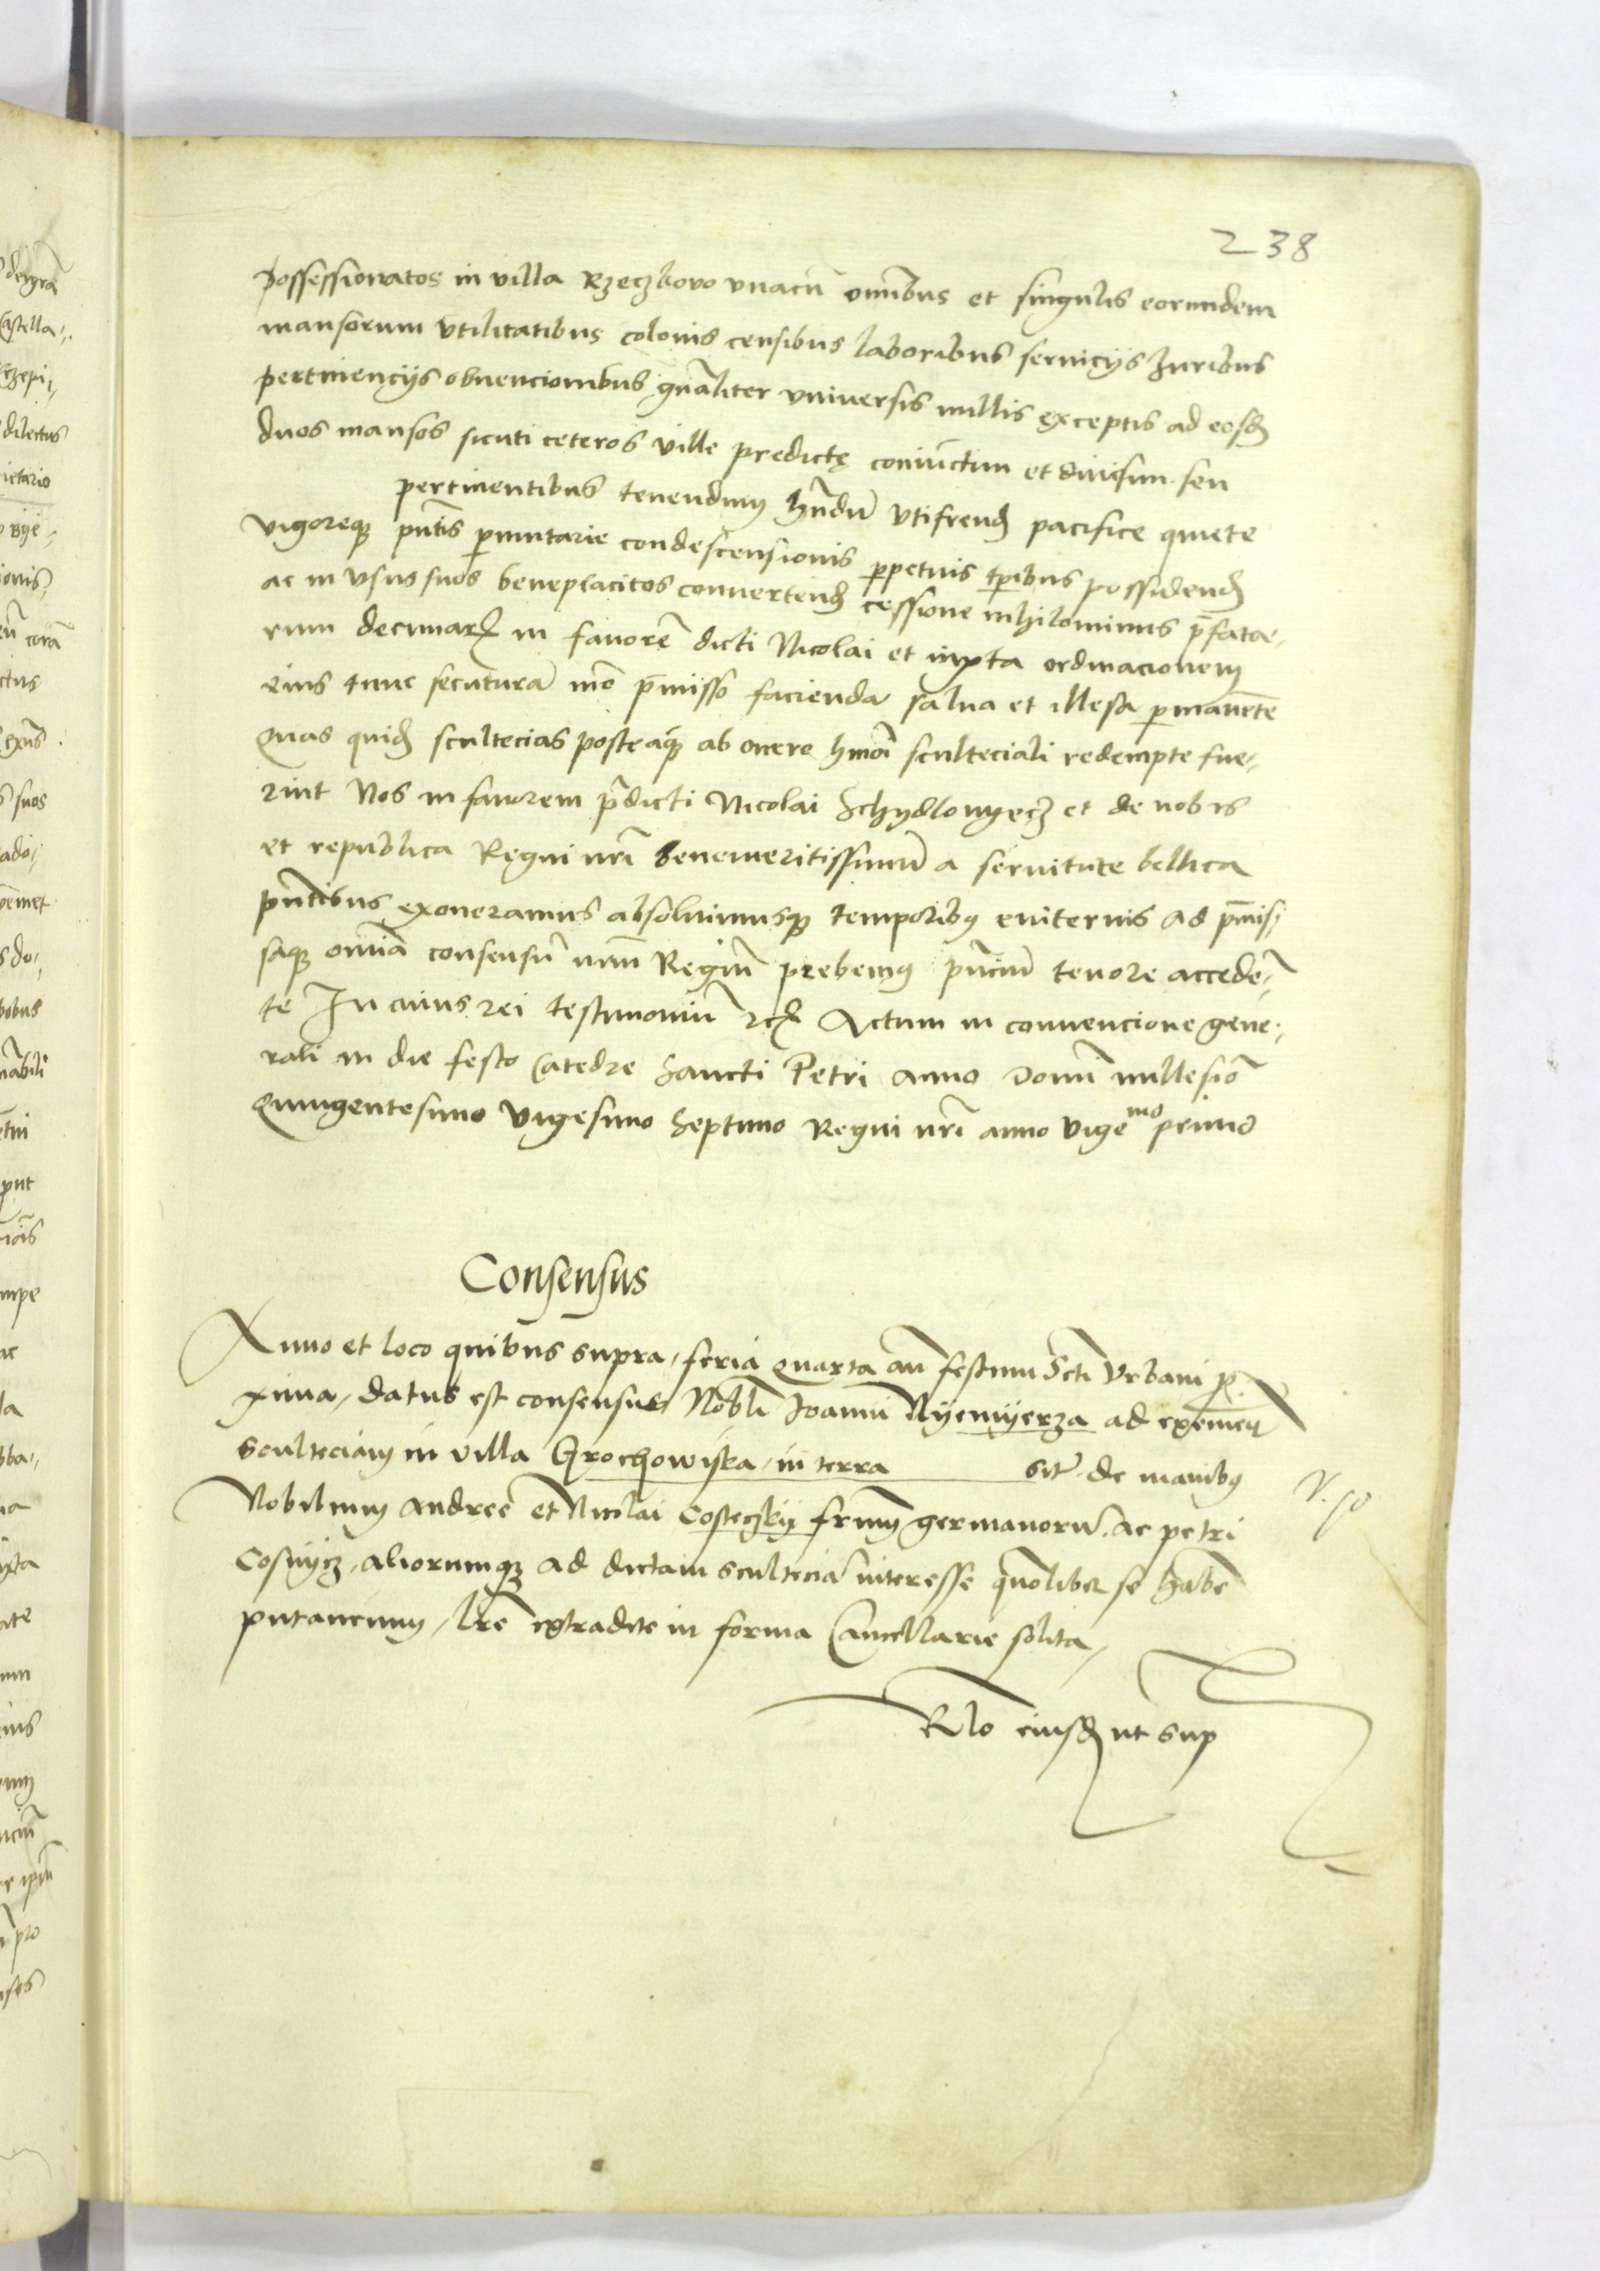 238
possessionatos in villa Rzeczkovo vnacu᷉ omnibus et singulis eorundem
mansorum vtilitatibus colonis censibus laboribus seruicijs Juribus
pertinencijs obuencionibus gn᷉aliter vniuersis nullis exceptis ad eosd
duos mansos sicuti ceteros ville predictę coniunctim et diuisim seu
pertinentibus tenendum hn᷉du᷉ vtifruend pacifice quiete
vigoreq pn᷉tis permutarie condescensionis perpetuis tp᷉ibus possidend
ac in vsus suos beneplacitos conuertend cessione nihilominus p᷉fatae-
rum decimar in fauore᷉ dicti Nicolai et iuxta ordinacionem
eius tunc secutura᷉ mo᷉ p᷉misso facienda salua et illesa permane᷉te
Quas quid scultecias posteaq ab onere hm᷉oi sculteciali redempte fue-
rint Nos in fauorem p᷉dicti Nicolai Schydlowyecz et de nobis
et republica Regni nr᷉i benemeritissimu᷉ a seruitute bellica
pn᷉tibus exoneramus absoluimusq temporibus euiternis ad p᷉mis-
saq omnia consensu᷉ nr᷉m Regiu᷉ prebemus pn᷉ciu᷉ tenore accede᷉-
te In cuius rei testimoniu᷉ Actum in conuencione gene-
rali in die festo Catedre Sancti Petri anno Domi᷉ millesi᷉o
Quingentesimo vigesimo Septimo Regni nr᷉i anno vigemo primo
Consensus
Anno et loco quibus supra, feria quarta an᷉ festum Scti᷉ Vrbani p
xima, datus est consensus Nobli᷉ Joanni Nyemyerza ad exime᷉
Sculteciam in villa Grochowiska in terra sit᷉ de manibus
Nobilium Andree et Nicolai Costeczky fr᷉um germanoru᷉ ac petri
Cosmycz, aliorumq ad dictam sculteciā interesse quo᷉libet se habe᷉
putancium, lr᷉e extradite in forma Cancellarie solita,
Rlo eiusd ut sup